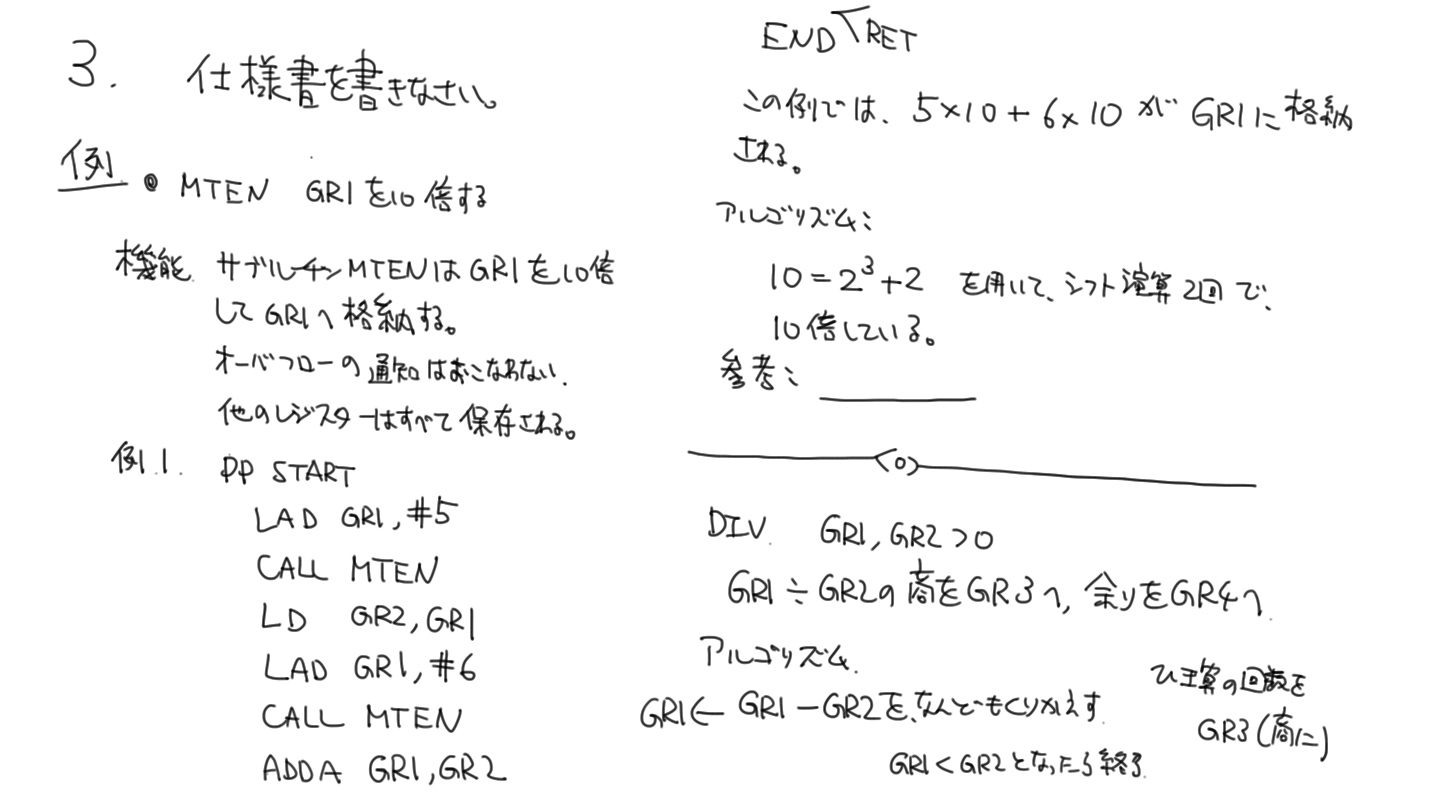 3. 仕様書を書きなさい。
例 MTEN GR1を10倍する
機能 サブルーチンMTENはGR1を10倍
してGR1へ格納する。
オーバフローの通知はおこなわない.
他のレジスターはすべて保存される。
例.1. PP START
LAD GR1, #5
CALL MTEN
LD GR2, GR1
LAD GR1, #6
CALL MTEN
ADDA GR1, GR2
RET
END
この例では、5×10+6×10 が GR1に格納
される。
アルゴリズム:
10=2³+2 を用いて、シフト演算2回で、
10倍している。
参考:
DIV. GR1, GR2>0
GR1÷GR2の商をGR3へ, 余りをGR4へ.
アルゴリズム.
GR1← GR1-GR2を、なんどもくりかえす.
GR1<GR2となったら終了.
ひき算の回数を
GR3(商に)